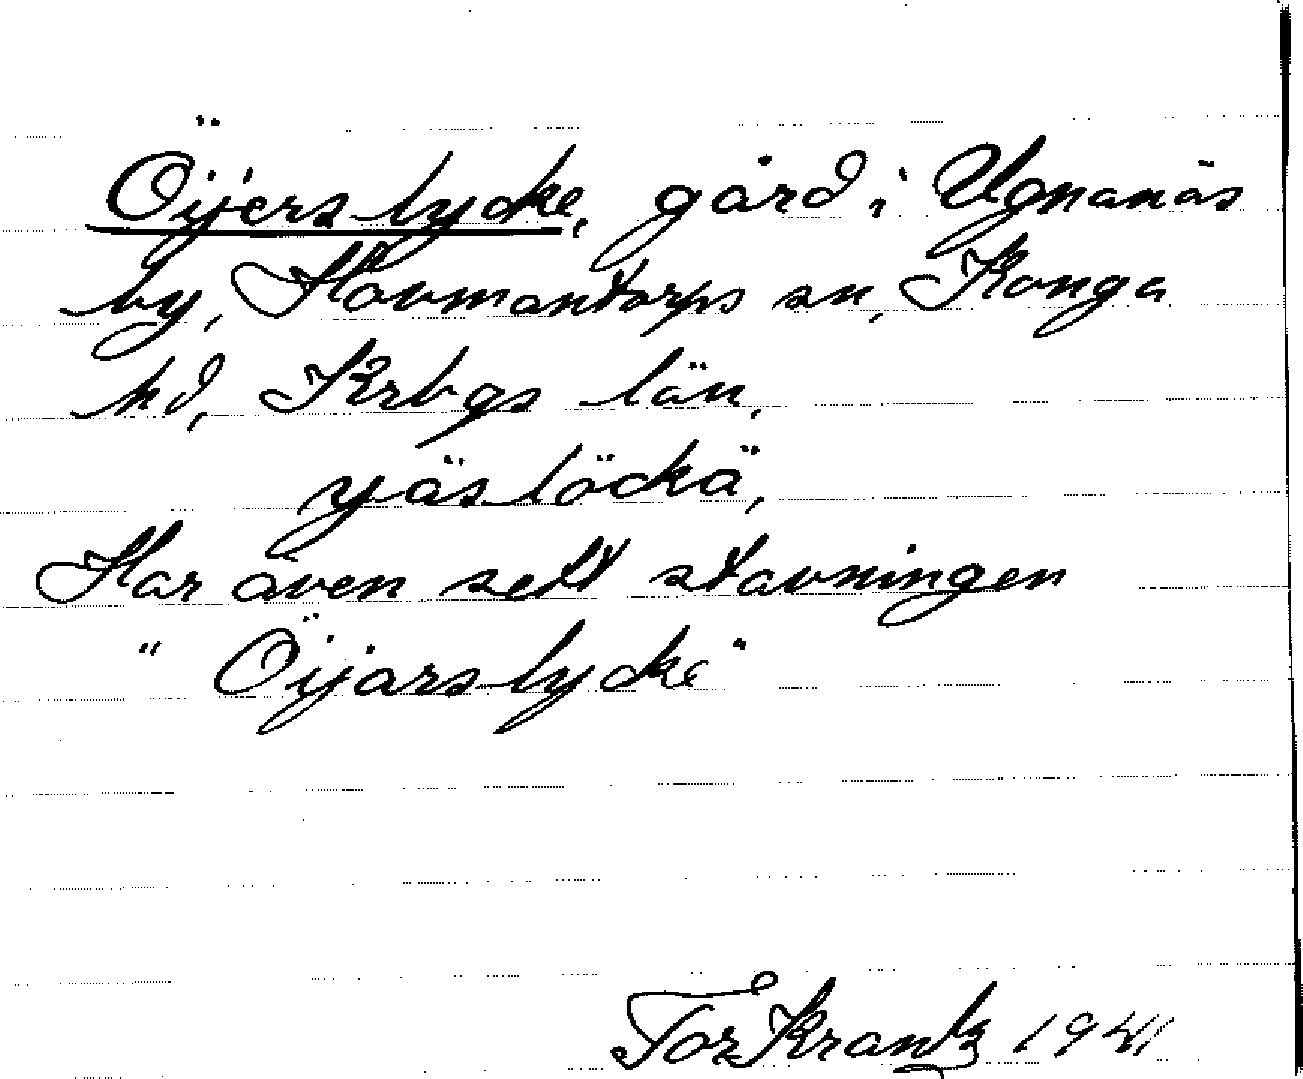 Öijerslycke, gård i Ugnanäs
by, Hovmantorps sn, Konga
hd, Krbgs län,
yäslöckä,
Har även sett stavningen
"Öijarslycke"
Tor Krantz 1941